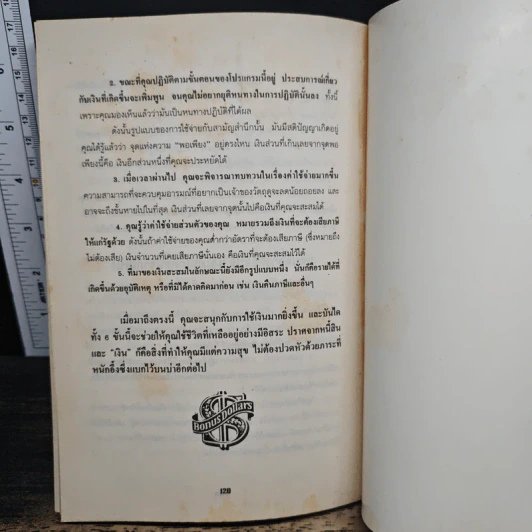 ๒. ขณะที่คุณปฏิบัติตามขั้นตอนของโปรแกรมนี้อยู่ ประสบการณ์เกี่ยว
กับเงินที่เกิดขึ้นจะเพิ่มพูน จนคุณไม่อยากยุติหนทางในการปฏิบัตินั้นลง ทั้งนี้
เพราะคุณมองเห็นแล้วว่ามันเป็นหนทางปฏิบัติที่ได้ผล
ดังนั้นรูปแบบของการใช้จ่ายกับสามัญสำนึกนั้น มันมีสติปัญญาเกิดอยู่
คุณได้รู้แล้วว่า จุดแห่งความ "พอเพียง" อยู่ตรงไหน เงินส่วนที่เกินเลยจากจุดพอ
เพียงนี้คือ เงินอีกส่วนหนึ่งที่คุณจะประหยัดได้
๓. เมื่อเวลาผ่านไป คุณจะพิจารณาทบทวนในเรื่องค่าใช้จ่ายมากขึ้น
ความสามารถที่จะควบคุมอารมณ์ที่อยากเป็นเจ้าของวัตถุดูจะลดน้อยถอยลง และ
อาจจะถึงขั้นหายไปในที่สุด เงินส่วนที่เลยจากจุดนั้นไปคือเงินที่คุณจะสะสมได้
๔. คุณรู้ว่าค่าใช้จ่ายส่วนตัวของคุณ หมายรวมถึงเงินที่จะต้องเสียภาษี
ให้แก่รัฐด้วย ดังนั้นถ้าค่าใช้จ่ายของคุณต่ำกว่าอัตราที่จะต้องเสียภาษี (ซึ่งหมายถึง
ไม่ต้องเสีย) เงินจำนวนที่เคยเสียภาษีนั่นเอง คือเงินที่คุณจะสะสมไว้ได้
๕. ที่มาของเงินสะสมในลักษณะนี้ยังมีอีกรูปแบบหนึ่ง นั่นก็คือรายได้ที่
เกิดขึ้นด้วยอุบัติเหตุ หรือที่มิได้คาดคิดมาก่อน เช่น เงินคืนภาษีและอื่นๆ
เมื่อมาถึงตรงนี้ คุณจะสนุกกับการใช้เงินมากยิ่งขึ้น และบันได
ทั้ง ๖ ขั้นนี้จะช่วยให้คุณใช้ชีวิตที่เหลืออยู่อย่างมีอิสระ ปราศจากหนี้สิน
และ "เงิน" ก็คือสิ่งที่ทำให้คุณมีแต่ความสุข ไม่ต้องปวดหัวด้วยภาระที่
หนักอึ้งซึ่งแบกไว้บนบ่าอีกต่อไป
Bonus Dollars
128